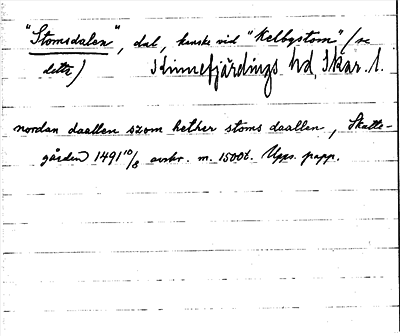 "Stomsdalen", dal, kanske vid "Kelbystom" (se
detta) Kinnefjärdings hd, Skar. l.
nordan daallen szom hether stoms daallen, Skatte-
gården 1491 10/8 avskr. m. 1500t. Upps. papp.